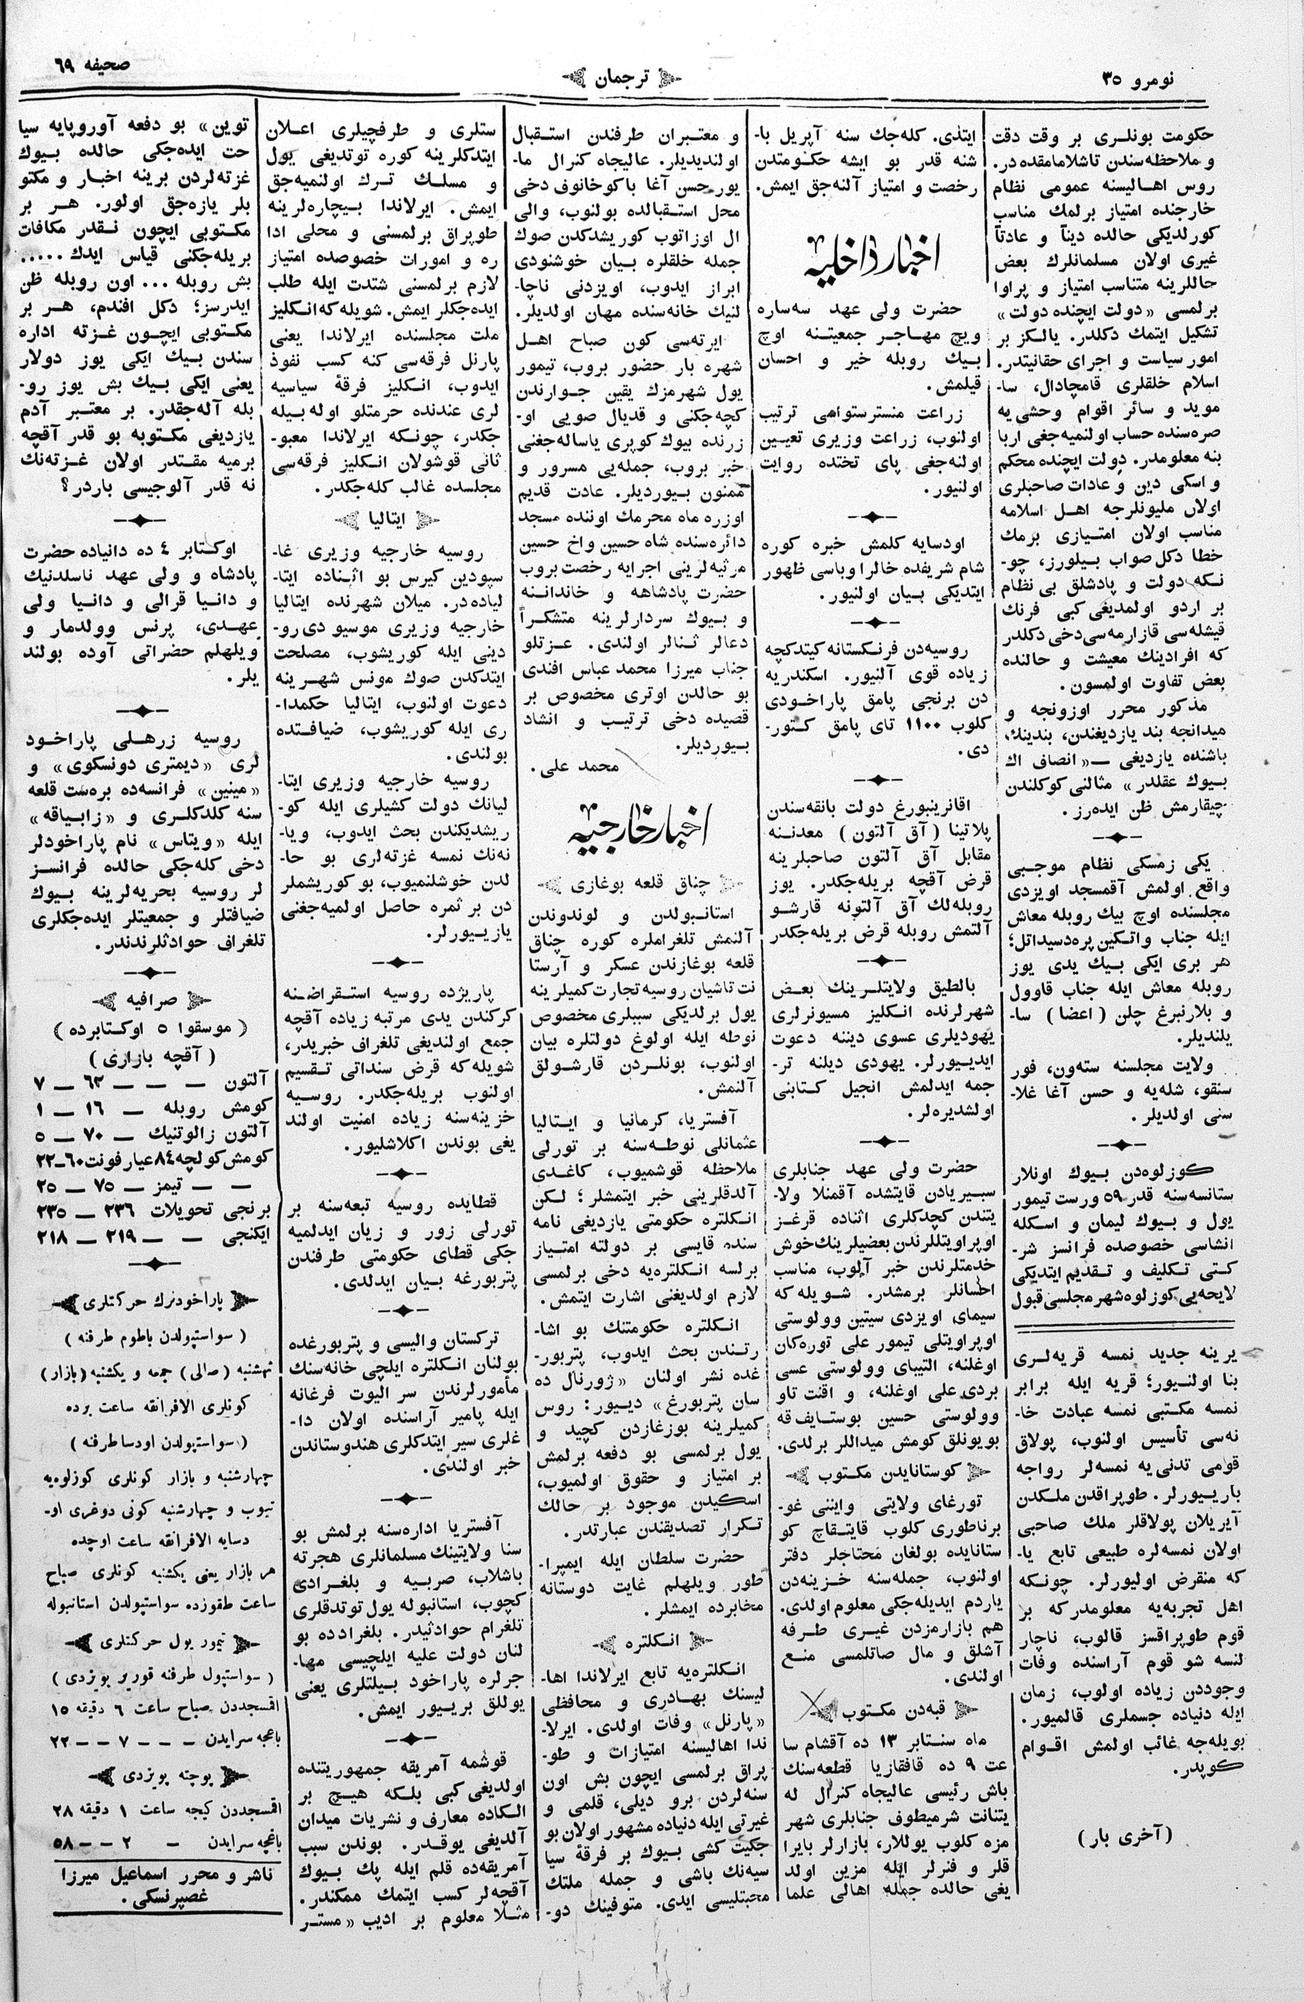 نومرو ۳۵
ترجمان
صحیفه ۶۹
حکومت بونلری بر وقت دقت
و ملاحظه سندن تاشلامامقده در.
روس اهالیسنه عمومی نظام
خارجنده امتیاز برلمك مناسب
کورلدیکی حالده دیناً و عادتاً
غیری اولان مسلمانلرك بعض
حاللرینه متناسب امتیاز و پراوا
برلمسی «دولت ایچنده دولت»
تشکیل ایتمك دکلدر. یالکز بر
امور سیاست و اجرای حقانیتدر.
اسلام خلقلری قامچادال، سا-
موید و سائر اقوام وحشی یه
صره سنده حساب اولنمیه جغی اربا
بنه معلومدر. دولت ایچنده محکم
و اسکی دین و عادات صاحبلری
اولان ملیونلرجه اهل اسلامه
مناسب اولان امتیازی برمك
خطا دکل صواب بیلورز، چو-
نکه دولت و پادشلق بی نظام
بر اردو اولمدیغی کبی فرنك
قیشله سی قازارمه سی دخی دکلدر
که افرادینك معیشت و حالنده
بعض تفاوت اولمسون.
مذکور محرر اوزونجه و
میدانجه بند یازدیغندن، بندینك
باشنده یازدیغی —«انصاف اك
بیوك عقلدر» مثالنی کوکلندن
چیقارمش ظن ایده رز.
یکی زمسکی نظام موجبی
واقع اولمش آقمسجد اویزدی
مجلسنده اوچ بیك روبله معاش
ایله جناب واتکین پره دسیداتل؛
هر بری ایکی بیك یدی یوز
روبله معاش ایله جناب قاوول
و بلارنبرغ چلن (اعضا) سا-
یلندیلر.
ولایت مجلسنه سته ون، فور
سنقو، شله یه و حسن آغا غلا-
سنی اولدیلر.
کوزلوه دن بیوك اونلار
ستانسه سنه قدر ۵۹ ورست تیمور
یول و بیوك لیمان و اسکله
انشاسی خصوصده فرانسز شر-
کتی تکلیف و تقدیم ایتدیکی
لایحه یی کوزلوه شهر مجلسی قبول
یرینه جدید نمسه قریه لری
بنا اولنیور؛ قریه ایله برابر
نمسه مکتبی نمسه عبادت خا-
نه سی تأسیس اولنوب، پولاق
قومی تدنی یه نمسه لر رواجه
باریورلر. طوپراقدن ملکدن
آیریلان پولاقلر ملك صاحبی
اولان نمسه لره طبیعی تابع یا-
که منقرض اولیورلر. چونکه
اهل تجربه یه معلومدرکه بر
قوم طوپراقسز قالوب، ناچار
لنسه شو قوم آراسنده وفات
وجوددن زیاده اولوب، زمان
ایله دنیاده جسملری قالمیور.
بویله جه غائب اولمش اقوام
کوپدر.
(آخری بار)
ایتدی. کله جك سنه آپریل با-
شنه قدر بو ایشه حکومتدن
رخصت و امتیاز آلنه جق ایمش.
اخبار داخلیه
حضرت ولی عهد سه ساره
ویچ مهاجر جمعیتنه اوچ
بیك روبله خیر و احسان
قیلمش.
زراعت منسترستواهی ترتیب
اولنوب، زراعت وزیری تعیین
اولنه جغی پای تختده روایت
اولنیور.
اودسایه کلمش خبره کوره
شام شریفده خالرا وباسی ظهور
ایتدیکی بیان اولنیور.
روسیه دن فرنکستانه کیتدکچه
زیاده قوی آلنیور. اسکندریه
دن برنجی پامق پاراخودی
کلوب ۱۱۰۰ تای پامق کتور-
دی.
اقانرینبورغ دولت بانقه سندن
پلاتینا (آق آلتون) معدننه
مقابل آق آلتون صاحبلرینه
قرض آقچه بریله جکدر. یوز
روبله لك آق آلتونه قارشو
آلتمش روبله قرض بریله جکدر
بالطیق ولایتلرینك بعض
شهرلرنده انکلیز مسیونرلری
یهودیلری عسوی دیننه دعوت
ایدیورلر. یهودی دیلنه تر-
جمه ایدلمش انجیل کتابنی
اولشدیره لر.
حضرت ولی عهد جنابلری
سبیریادن قایتشده آقمنلا ولا-
یتندن کچدکلری اثناده قرغز
اوپراویتللرندن بعضیلرینك خوش
خدمتلرندن خبر آلوب، مناسب
احسانلر برمشدر. شویله که
سیمای اویزدی سیتین وولوستی
اوپراویتلی تیمور علی توره کان
اوغلنه، التیبای وولوستی عسی
بردی علی اوغلنه، و اقنت تاو
وولوستی حسین بوستایف قه
بویونلق کومش میداللر برلدی.
کوستانایدن مکتوب
تورغای ولایتی وایننی غو-
برناطوری کلوب قایتقاچ کو
ستانایده بولغان محتاجلر دفتر
اولنوب، جمله سنه خزینه دن
یاردم ایدیله جکی معلوم اولدی.
هم بازارمزدن غیری طرفه
آشلق و مال صاتلمسی منع
اولندی.
قبه دن مکتوب
ماه سنتابر ۱۳ ده آقشام سا
عت ۹ ده قافقازیا قطعه سنك
باش رئیسی عالیجاه کنرال له
یتنانت شرمیطوف جنابلری شهر
مزه کلوب یوللار، بازارلر بایرا
قلر و فنرلر ایله مزین اولد
یغی حالده جمله اهالی علما
و معتبران طرفندن استقبال
اولندیدیلر. عالیجاه کنرال ما-
یور حسن آغا باکوخانوف دخی
محل استقبالده بولنوب، والی
ال اوزاتوب کوریشدکدن صوك
جمله خلقلره بیان خوشنودی
ابراز ایدوب، اویزدنی ناچا-
لنیك خانه سنده مهان اولدیلر.
ایرته سی کون صباح اهل
شهره بار حضور بروب، تیمور
یول شهرمزك یقین جوارندن
کچه جکنی و قدیال صویی او-
زرنده بیوك کوپری یاساله جغنی
خبر بروب، جمله یی مسرور و
ممنون بیوردیلر. عادت قدیم
اوزره ماه محرمك اوننده مسجد
دائره سنده شاه حسین واخ حسین
مرثیه لرینی اجرایه رخصت بروب
حضرت پادشاهه و خاندانه
و بیوك سردارلرینه متشکراً
دعالر ثنالر اولندی. عزتلو
جناب میرزا محمد عباس افندی
بو حالدن اوتری مخصوص بر
قصیده دخی ترتیب و انشاد
بیوردیلر.
محمد علی.
اخبار خارجیه
چناق قلعه بوغازی
استانبولدن و لوندوندن
آلنمش تلغراملره کوره چناق
قلعه بوغازندن عسکر و آرستا
نت تاشیان روسیه تجارت کمیلرینه
یول برلدیکی سببلری مخصوص
نوطه ایله اولوغ دولتلره بیان
اولنوب، بونلردن قارشولق
آلنمش.
آفستریا، کرمانیا و ایتالیا
عثمانلی نوطه سنه بر تورلی
ملاحظه قوشمیوب، کاغدی
آلدقلرینی خبر ایتمشلر؛ لکن
انکلتره حکومتی یازدیغی نامه
سنده قایسی بر دولته امتیاز
برلسه انکلتره یه دخی برلمسی
لازم اولدیغنی اشارت ایتمش.
انکلتره حکومتنك بو اشا-
رتندن بحث ایدوب، پتربور-
غده نشر اولنان «ژورنال ده
سان پتربورغ» دییور: روس
کمیلرینه بوغازدن کچید و
یول برلمسی بو دفعه برلمش
بر امتیاز و حقوق اولمیوب،
اسکیدن موجود بر حالك
تکرار تصدیقندن عبارتدر.
حضرت سلطان ایله ایمپرا-
طور ویلهلم غایت دوستانه
مخابرده ایمشلر.
انکلتره
انکلتره یه تابع ایرلاندا اها-
لیسنك بهادری و محافظی
«پارنل» وفات اولدی. ایرلا-
ندا اهالیسنه امتیازات و طو-
پراق برلمسی ایچون بش اون
سنه لردن برو دیلی، قلمی و
غیرتی ایله دنیاده مشهور اولان بو
جکیت کشی بیوك بر فرقهٔ سیا
سیه نك باشی و جمله ملتك
محبتلیسی ایدی. متوفینك دو-
ستلری و طرفچیلری اعلان
ایتدکلرینه کوره توتدیغی یول
و مسلك ترك اولنمیه جق
ایمش. ایرلاندا بیچاره لرینه
طوپراق برلمسنی و محلی ادا
ره و امورات خصوصده امتیاز
لازم برلمسنی شتدت ایله طلب
ایده جکلر ایمش. شویله که انکلیز
ملت مجلسنده ایرلاندا یعنی
پارنل فرقه سی کنه کسب نفوذ
ایدوب، انکلیز فرقهٔ سیاسیه
لری عندنده حرمتلو اوله بیله
جکدر، چونکه ایرلاندا معبو-
ثانی قوشولان انکلیز فرقه سی
مجلسده غالب کله جکدر.
ایتالیا
روسیه خارجیه وزیری غا-
سپودین کیرس بو اثناده ایتا-
لیاده در. میلان شهرنده ایتالیا
خارجیه وزیری موسیو دی رو-
دینی ایله کوریشوب، مصلحت
ایتدکدن صوك مونس شهرینه
دعوت اولنوب، ایتالیا حکمدا-
ری ایله کوریشوب، ضیافتده
بولندی.
روسیه خارجیه وزیری ایتا-
لیانك دولت کشیلری ایله کو-
ریشدیکندن بحث ایدوب، ویا-
نه نك نمسه غزته لری بو حا-
لدن خوشلنمیوب، بو کوریشملر
دن بر ثمره حاصل اولمیه جغنی
یازیورلر.
پاریژده روسیه استقراضنه
کرکندن یدی مرتبه زیاده آقچه
جمع اولندیغی تلغراف خبریدر،
شویله که قرض سنداتی تقسیم
اولنوب بریله جکدر. روسیه
خزینه سنه زیاده امنیت اولند
یغی بوندن اکلاشلیور.
قطایده روسیه تبعه سنه بر
تورلی زور و زیان ایدلمیه
جکی قطای حکومتی طرفندن
پتربورغه بیان ایدلدی.
ترکستان والیسی و پتربورغده
بولنان انکلتره ایلچی خانه سنك
مأمورلرندن سر الیوت فرغانه
ایله پامیر آراسنده اولان دا-
غلری سیر ایتدکلری هندوستاندن
خبر اولندی.
آفستریا اداره سنه برلمش بو
سنا ولایتینك مسلمانلری هجرته
باشلاب، صربیه و بلغرادی
کچوب، استانبوله یول توتدقلری
تلغرام حوادثیدر. بلغرادده بو
لنان دولت علیه ایلچیسی مها-
جرلره پاراخود بیلتلری یعنی
یوللق بریور ایمش.
قوشمه آمریقه جمهوریتنده
اولدیغی کبی بلکه هیچ بر
الکاده معارف و نشریات میدان
آلدیغی یوقدر. بوندن سبب
آمریقه ده قلم ایله پك بیوك
آقچه لر کسب ایتمك ممکندر.
مثلا معلوم بر ادیب «مستر
توین» بو دفعه آوروپایه سیا
حت ایده جکی حالده بیوك
غزته لردن برینه اخبار و مکتو
بلر یازه جق اولور. هر بر
مکتوبی ایچون نقدر مکافات
بریله جکنی قیاس ایدك .....
بش روبله ... اون روبله ظن
ایدرسز؛ دکل افندم، هر بر
مکتوبی ایچون غزته اداره
سندن بیك ایکی یوز دولار
یعنی ایکی بیك بش یوز رو-
بله آله جقدر. بر معتبر آدم
یازدیغی مکتوبه بو قدر آقچه
برمیه مقتدر اولان غزته نك
نه قدر آلوجیسی باردر؟
اوکتابر ٤ ده دانیاده حضرت
پادشاه و ولی عهد ناسلدنیك
و دانیا قرالی و دانیا ولی
عهدی، پرنس وولدمار و
ویلهلم حضراتی آوده بولند
یلر.
روسیه زرهلی پاراخود
لری «دیمتری دونسکوی» و
«مینین» فرانسه ده بره ست قلعه
سنه کلدکلری و «زابیاقه»
ایله «ویتاس» نام پاراخودلر
دخی کله جکی حالده فرانسز
لر روسیه بحریه لرینه بیوك
ضیافتلر و جمعیتلر ایده جکلری
تلغراف حوادثلرندندر.
صرافیه
(موسقوا ۵ اوکتابرده)
(آقچه بازاری)
آلتون — — — ٦٢ — ٧
کومش روبله — ١٦ — ١
آلتون زالوتنیك — ٧٠ — ٥
کومش کولچه ٨٤ عیار فونت ٦٠—٢٢
— — تیمز — ٧٥ — ٢٥
برنجی تحویلات ٢٣٦ — ٢٣٥
ایکنجی — — ٢١٩ — ٢١٨
پاراخودنرك حرکتلری
(سواستپولدن باطوم طرفنه)
ثهشنبه (صالی) جمعه و یکشنبه (بازار)
کونلری الافرانقه ساعت برده
(سواستپولدن اودسا طرفنه)
چهارشنبه و بازار کونلری کوزلوه یه
تیوب و چهارشنبه کونی دوغری او-
دسایه الافرانقه ساعت اوچده
هر بازار یعنی یکشنبه کونلری صباح
ساعت طقوزده سواستپولدن استانبوله
تیمور یول حرکتلری
(سواستپول طرفنه قوریر پویزدی)
اقمسجددن صباح ساعت ٦ دقیقه ١٥
باغچه سرایدن — — ٧ — — ٢٢
پوچته پویزدی
اقمسجددن کیجه ساعت ١ دقیقه ٢٨
باغچه سرایدن — ٢ — — ٥٨
ناشر و محرر اسماعیل میرزا
غصپرنسکی.